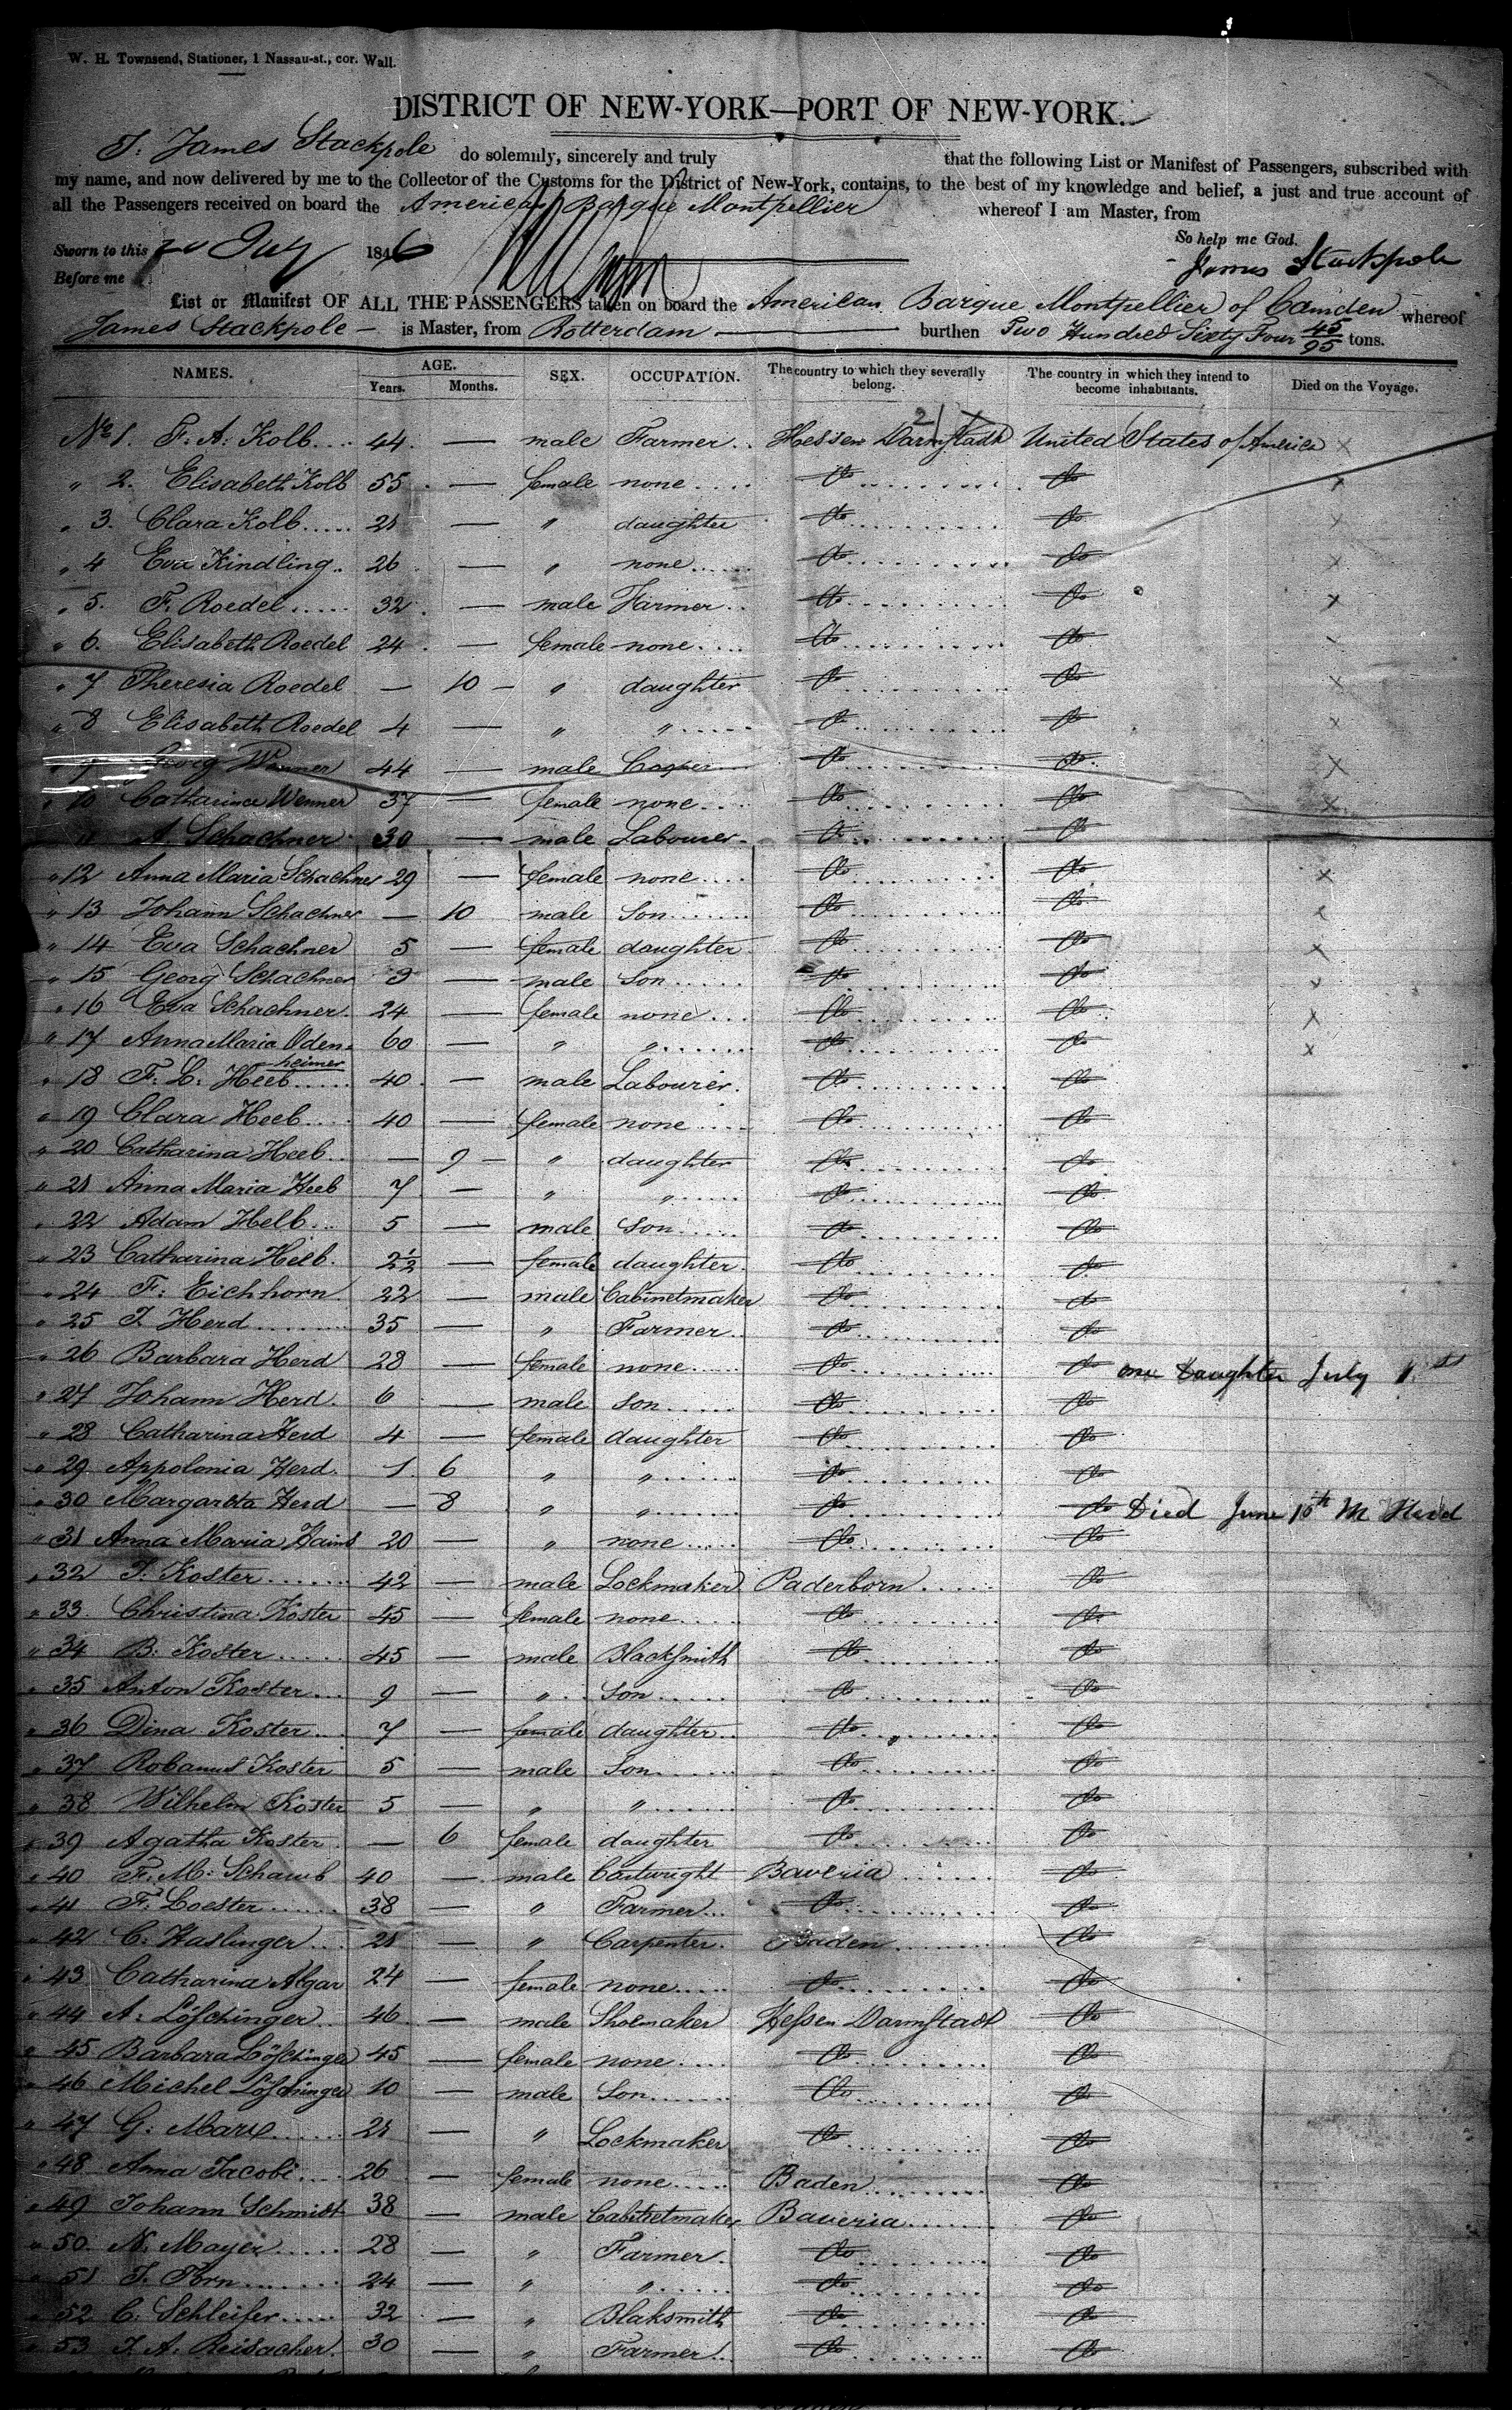 W. H. Townsend, Stationer, 1 Nassau-st., cor. Wall.
DISTRICT OF NEW-YORK—PORT OF NEW-YORK.
I. James Stackpole do solemnly, sincerely and truly that the following List or Manifest of Passengers, subscribed with
my name, and now delivered by me to the Collector of the Customs for the District of New-York, contains, to the best of my knowledge and belief, a just and true account of
all the Passengers received on board the American Barque Montpellier whereof I am Master, from
So help me God.
Sworn to this July 1846
James Stackpole
Before me
List or Manifest OF ALL THE PASSENGERS taken on board the American Barque Montpellier of Camden whereof
James Stackpole — is Master, from Rotterdam — burthen Two Hundred Sixty Four 45/95 tons.
NAMES. AGE. Years. Months. SEX. OCCUPATION. The country to which they severally belong. The country in which they intend to become inhabitants. Died on the Voyage.
No 1. F. A. Kolb 44 — male Farmer Hessen Darmstadt United States of America x
" 2. Elisabeth Kolb 55 — female none do do x
" 3. Clara Kolb 21 — " daughter do do x
" 4 Eva Kindling 26 — " none do do x
" 5. F. Roedel 32 — male Farmer do do x
" 6. Elisabeth Roedel 24 — female none do do
" 7 Theresia Roedel — 10 — " daughter do do x
" 8 Elisabeth Roedel 4 — " " do do x
" 9 Georg Wenner 44 — male Cooper do do x
" 10 Catharina Wenner 37 — female none do do x
" 11 A. Schachner 30 — male Labourer do do
" 12 Anna Maria Schachner 29 — female none do do x
" 13 Johann Schachner — 10 male Son do do x
" 14 Eva Schachner 5 — female daughter do do x
" 15 Georg Schachner 3 — male Son do do x
" 16 Eva Schachner 24 — female none do do x
" 17 Anna Maria Odenheimer 60 — " " do do x
" 18 F. L. Heeb 40 — male Labourer do do
" 19 Clara Heeb 40 — female none do do
" 20 Catharina Heeb — 9 — " daughter do do
" 21 Anna Maria Heeb 7 — " " do do
" 22 Adam Helb 5 — male Son do do
" 23 Catharina Heeb 2½ — female daughter do do
" 24 F. Eichhorn 22 — male Cabinetmaker do do
" 25 J Herd 35 — " Farmer do do
" 26 Barbara Herd 28 — female none do do one Daughter July 1st
" 27 Johann Herd 6 — male Son do do
" 28 Catharina Herd 4 — female daughter do do
" 29 Appolonia Herd 1 6 " " do do
" 30 Margareta Herd — 8 " " do do Died June 10th M Herd
" 31 Anna Maria Hains 20 — " none do do
" 32 J. Koster 42 — male Lockmaker Paderborn do
" 33. Christina Koster 45 — female none do do
" 34 B. Koster 45 — male Blacksmith do do
" 35 Anton Koster 9 — " Son do do
" 36 Dina Koster 7 — female daughter do do
" 37 Robanus Koster 5 — male Son do do
" 38 Wilhelm Koster 5 — " " do do
" 39 Agatha Koster — 6 female daughter do do
" 40 F. M. Schaub 40 — male Cartwright Baveria do
" 41 F. Loester 38 — " Farmer do do
" 42 C. Haslinger 21 — " Carpenter Baden do
" 43 Catharina Algar 24 — female none do do
" 44 A. Löschinger 46 — male Shoemaker Hessen Darmstadt do
" 45 Barbara Löschinger 45 — female none do do
" 46 Michel Löschinger 10 — male Son do do
" 47 G. Marx 21 " Lockmaker do do
" 48 Anna Jacobi 26 — female none Baden do
" 49 Johann Schmidt 38 — male Cabinetmaker Baveria do
" 50. N. Mayer 28 — " Farmer do do
" 51 J. Torn 24 — " " do do
" 52 C. Schleifer 32 — " Blaksmith do do
" 53 J. A. Reisacher 30 — " Farmer do do